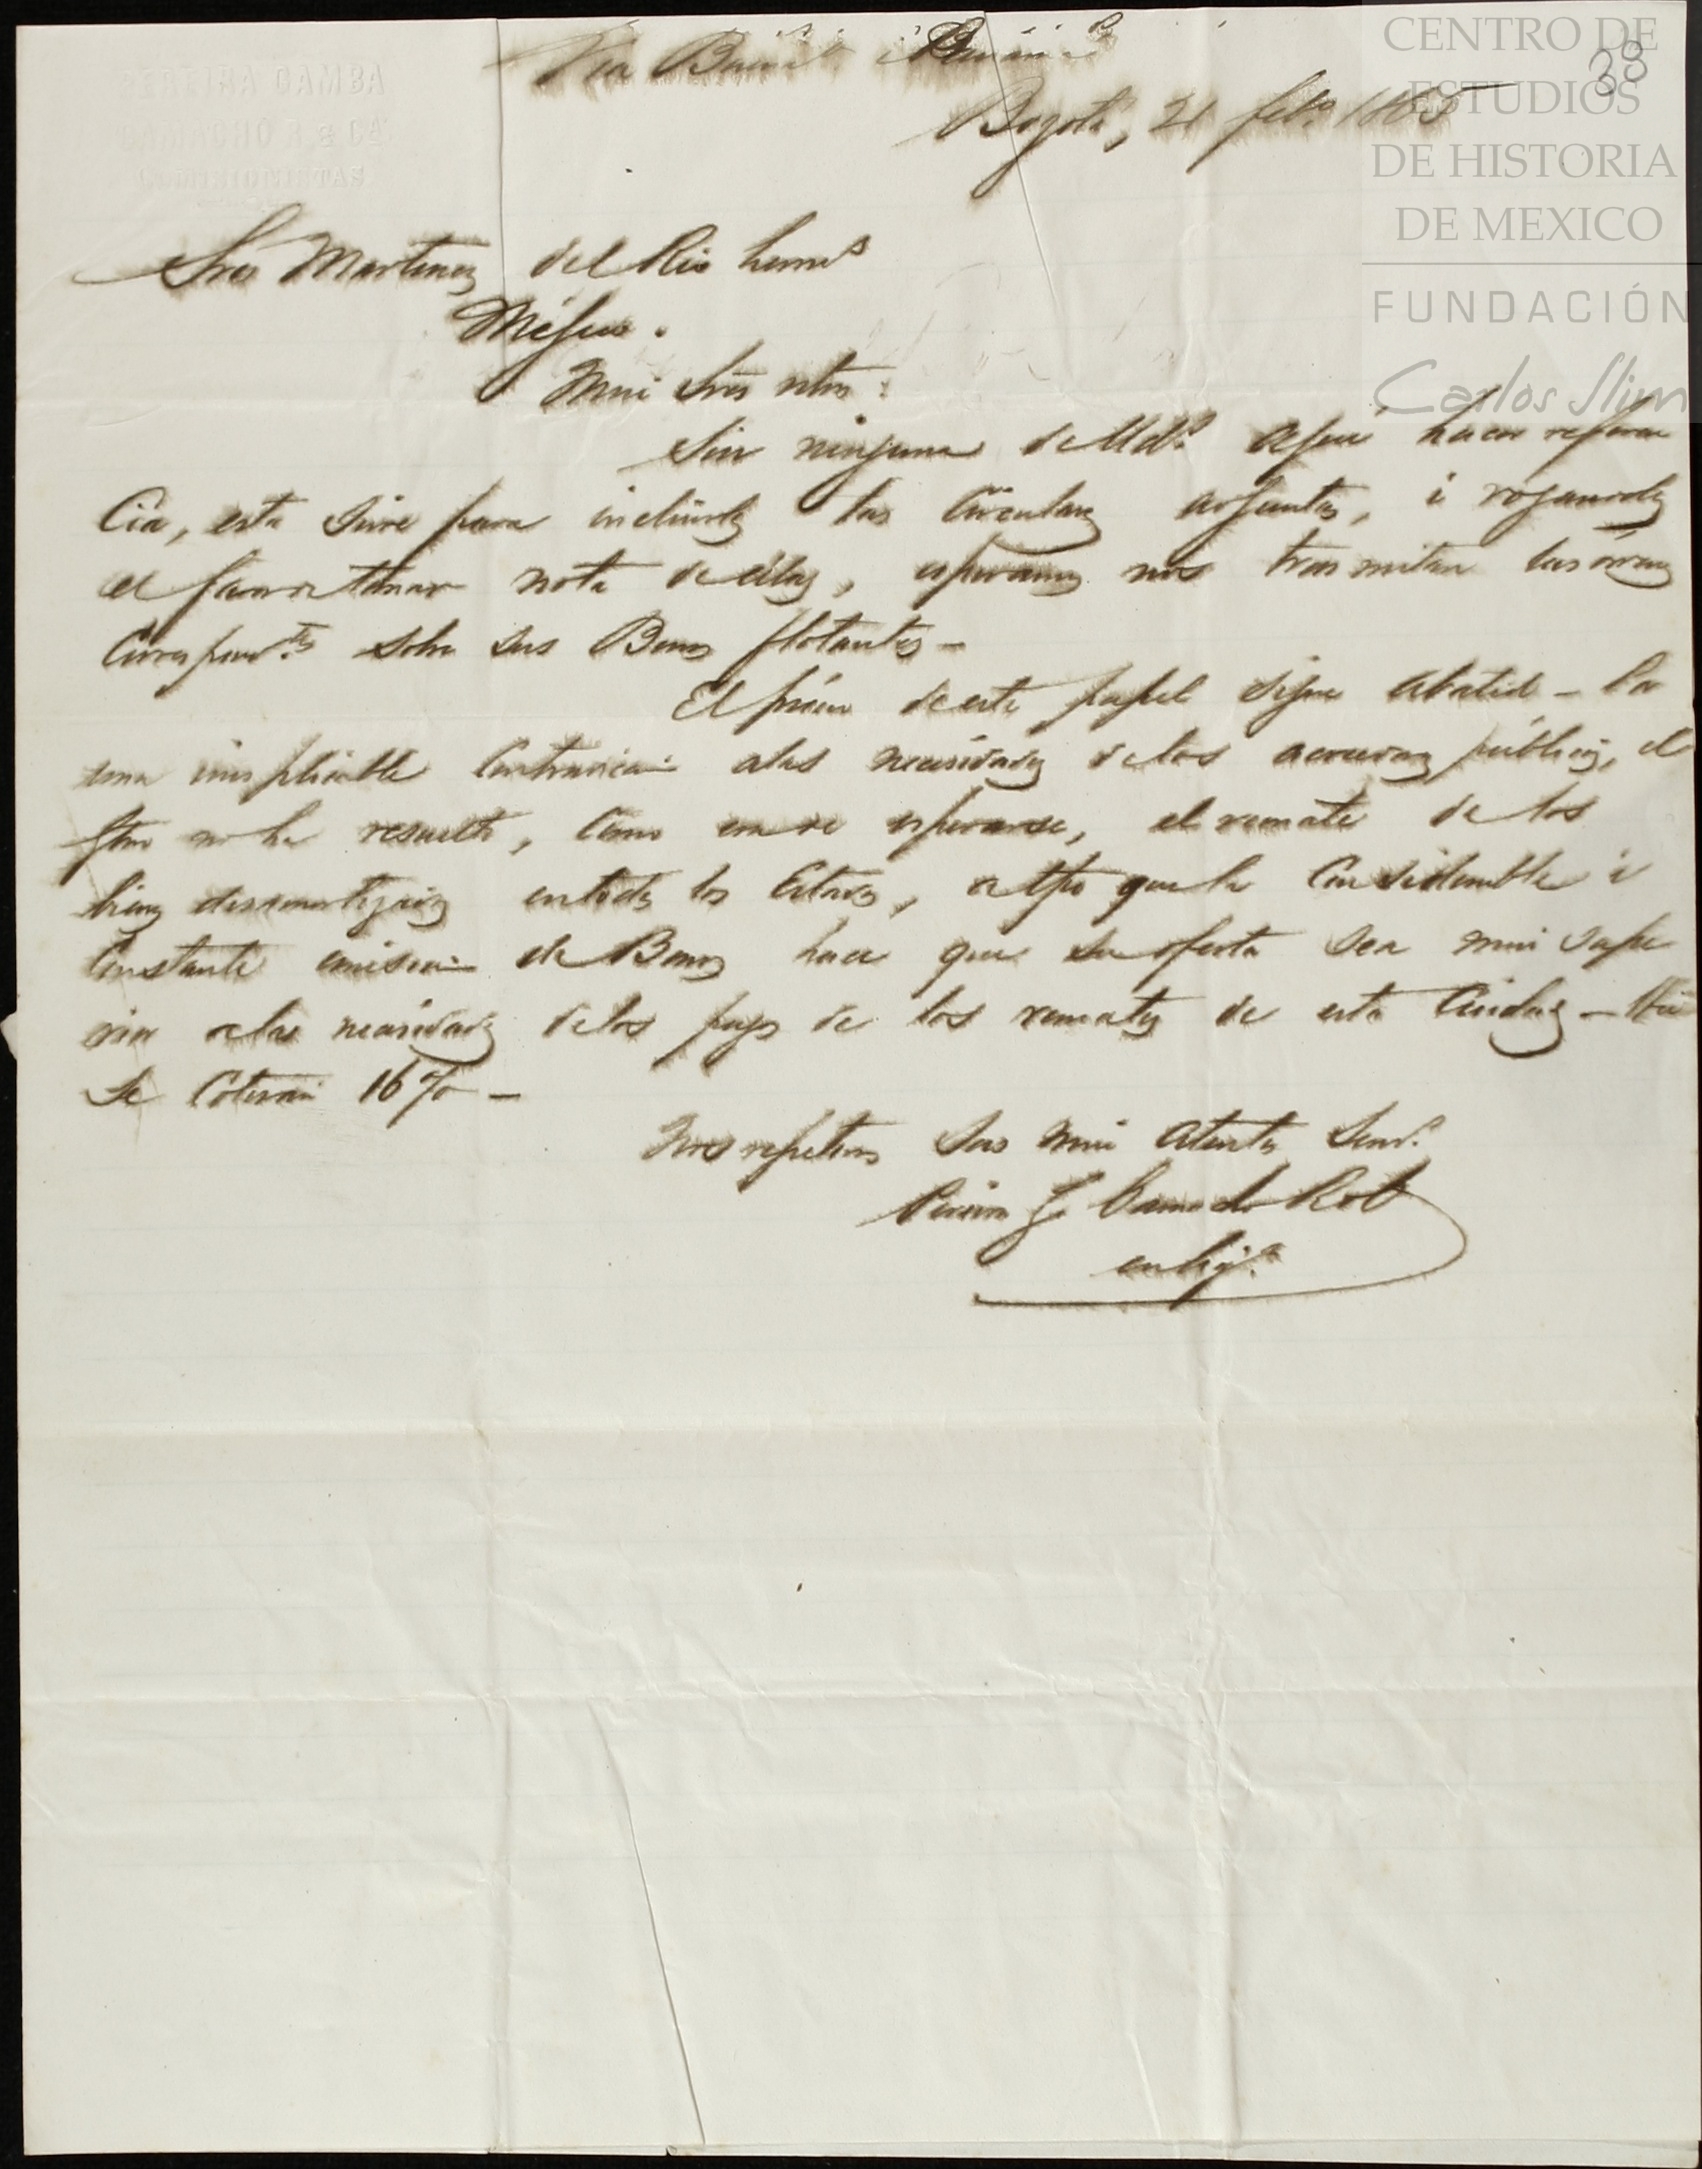 CENTRO DE
ESTUDIOS
DE HISTORIA
DE MEXICO
FUNDACIÓN
Carlos Slim
33
PEREIRA GAMBA
CAMACHO R. & Ca
COMISIONISTAS
Via
Bogotá, 21 feb.º 1865
Sres Martinez del Rio herms
Méjico.
Mui Sres ntros:
Sin ninguna de Uds. a que hacer referen
cia, esta sirve para incluirles las circulares adjuntas, i rogandoles
el favor de tomar nota de ellas, esperamos nos trasmitan las órdenes
correspond.tes sobre sus Bonos flotantes—
El precio de este papel sigue abatido— Por
una inesplicable contradiccion a las necesidades de los acreedores públicos, el
Gbno no ha resuelto, como era de esperarse, el remate de los
bienes desamortizados en todos los Estados, al paso que la considerable i
constante emision de Bonos hace que su oferta sea mui supe
rior a las necesidades de los pagos de los remates de esta Ciudad— Hoi
se cotizan 16%—
Nos repetimos sus mui atentos Serv.s
Pereira G. Camacho Rol
en liq.n